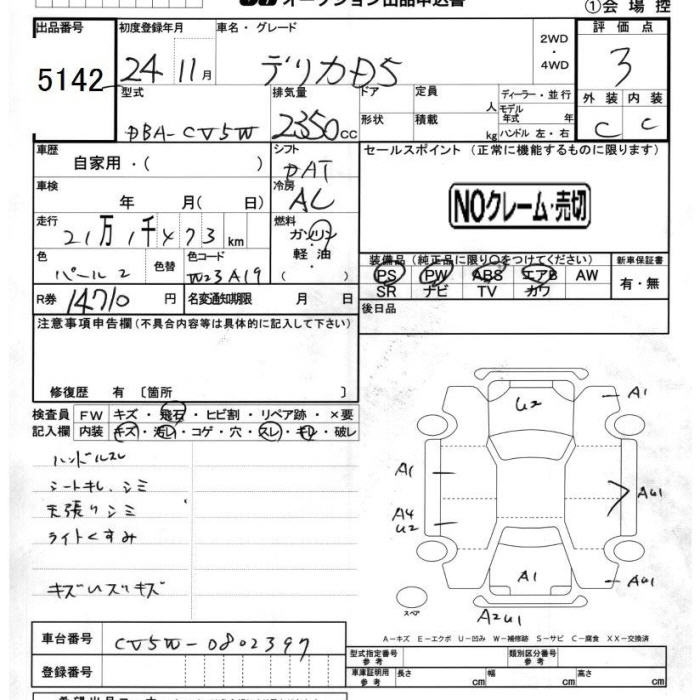 オークション出品申込書
①会場控
出品番号 初度登録年月 車名・グレード 2WD・4WD 評価点
5142 24年11月 デリカD5 3
型式 排気量 ドア 定員 人 ディーラー・並行 外装 内装
DBA-CV5W 2350cc 形状 積載 kg モデル年式 年 ハンドル 左・右 C C
車歴 シフト セールスポイント (正常に機能するものに限ります)
自家用・( ) DAT
車検 冷房 NOクレーム・売切
年 月( 日) AC
走行 燃料
21万1千473km ガソリン・軽油・( )
色 色替 色コード 装備品(純正品に限り○をつけてください) 新車保証書
パール2 W23A19 PS PW ABS エアB AW 有・無
SR ナビ TV カワ
R券 14710円 名変通知期限 月 日 後日品
注意事項申告欄(不具合内容等は具体的に記入して下さい)
修復歴 有〔箇所 〕
検査員 FW キズ・飛石・ヒビ割・リペア跡・×要
記入欄 内装 キズ・汚レ・コゲ・穴・スレ・キレ・破レ
ハンドルスレ
シートキレ、シミ
天張りシミ
ライトくすみ
キズいスリキズ
U2
A1
A1
A4
U2
AU1
A1
AU1
スペア
A2U1
A－キズ E－エクボ U－凹み W－補修跡 S－サビ C－腐食 XX－交換済
車台番号 CV5W-0802397
型式指定番号 参考 類別区分番号 参考
登録番号
車庫証明用 参考 長さ cm 幅 cm 高さ cm